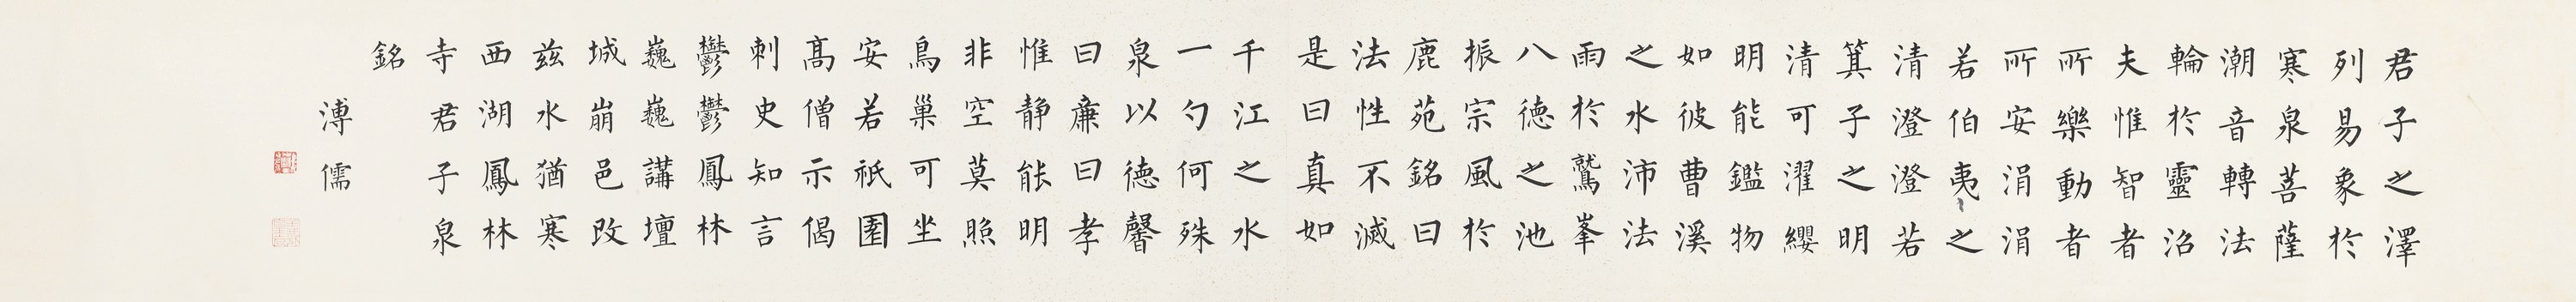 君子之澤
列易象於
寒泉菩薩
潮音轉法
輪於靈沼
夫惟智者
所樂動者
所安涓涓
若伯夷之
清澄澄若
箕子之明
清可濯纓
明能鑑物
如彼曹溪
之水沛法
雨於鷲峯
八德之池
振宗風於
鹿苑銘曰
法性不滅
是曰真如
千江之水
一勺何殊
泉以德馨
曰亷曰孝
惟静能明
非空莫照
鳥巢可坐
安若祇園
髙僧示偈
刺史知言
鬱鬱鳳林
巍巍講壇
城崩邑改
茲水猶寒
西湖鳳林
寺君子泉
銘
溥儒